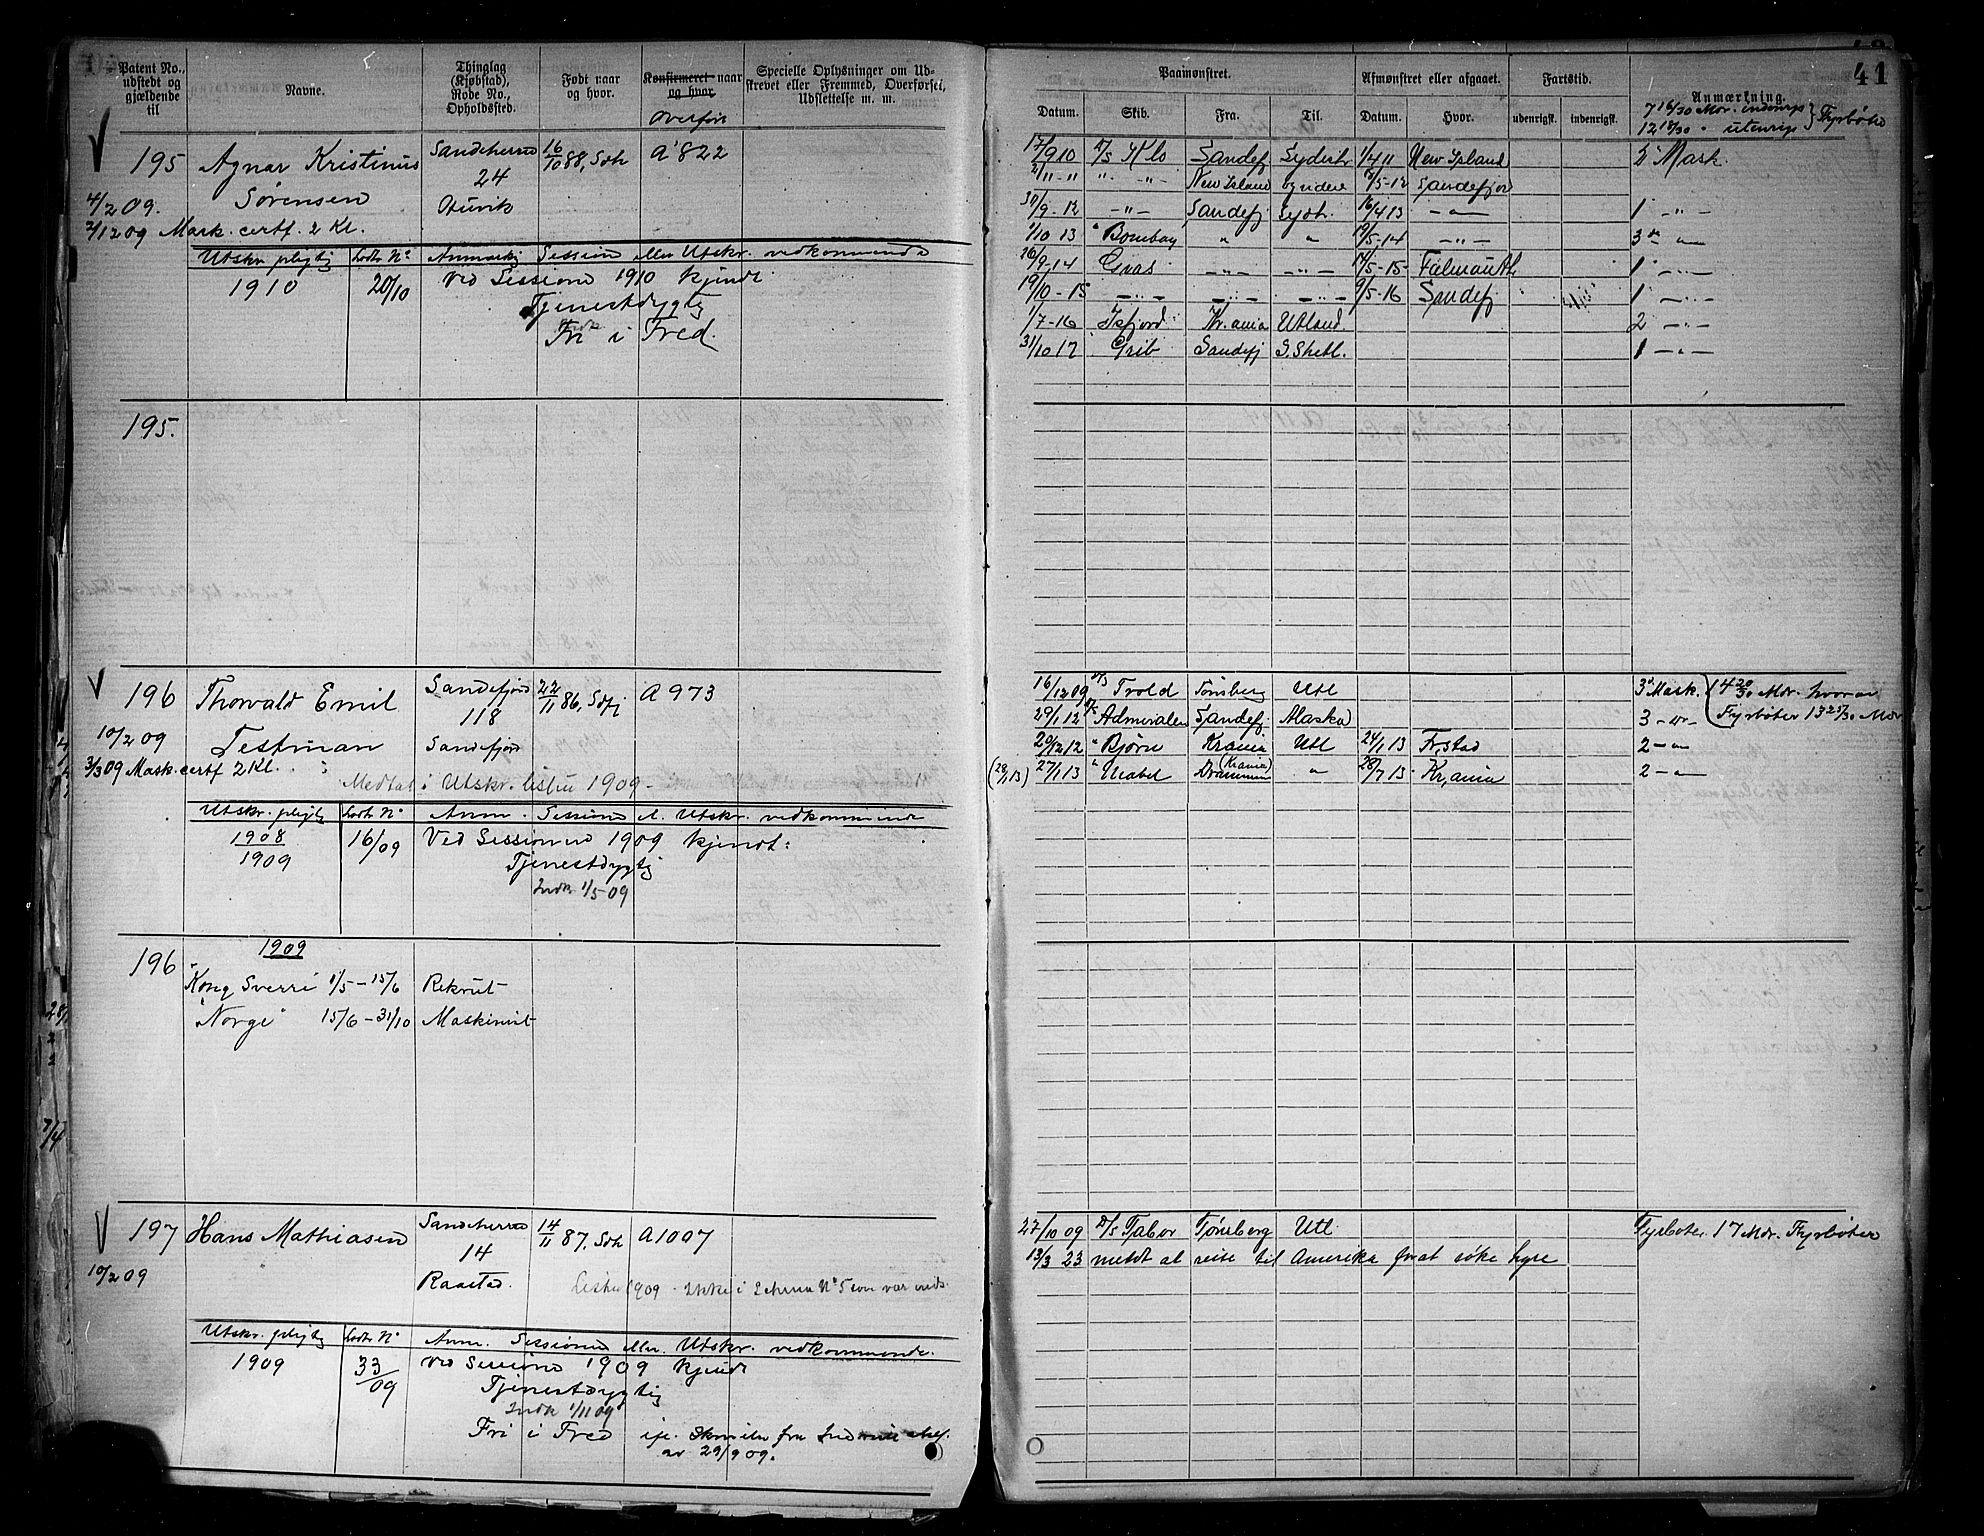 41
Patent No., udstedt og gjældende til
Navne.
Thinglag (Kjøbstad), Rode No., Opholdssted.
Født naar og hvor.
Konfirmeret naar og hvor
overført
Specielle Oplysninger om Udstrevet eller Fremmed, Overførsel, Udslettelse m. m.
Paamønstret.
Afmønstret eller afgaaet.
Fartstid.
Anmærkning.
Datum. Skib. Fra. Til. Datum. Hvor. udenrigsk. indenrigsk.
7 16/30 Mdr. indenrigs
12 18/30 " utenrigs } Fyrbøter
195 Agnar Kristinus Sandeherred 16/10 88, Sdh A 822
Sørensen 24
4/2 09.
2/12 09 Mask. certf. 2 Kl.
Utskr. pligtig Lodtr. No Anmærkn. Session eller Utskr. vedkommende
1910 20/10 Ved Session 1910 kjendt
Tjenestdygtig
Fri i Fred.
17/9 10 D/S Sandefj Sydishv 1/4 11 New Island 2 Mask.
2/11-11 " -"- New Island 18/5-12 Sandefjord
30/9-12 -"- Sandefj Sydh. 16/4 13 -"- 1 -"-
1/10 13 " Bombay " " 19/5-14 -"- 3 -"-
26/9-14 Gras -"- -"- 14/5-15- Falmouth 1 -"-
19/10-15 -"- -"- -"- 9/5-16 Sandefj 1 -"-
1/7-16 Isfjord Kr.ania Utland. 2 -"-
31/10 17 " Grib Sandefj S. Shetl. 1 -"-
195.
196 Thorvald Emil Sandefjord 22/11 86, Sdfj A 973
118
10/2 09 Testman Sandefjord
3/3 09 Mask. certf 2 Kl.
Medtat i Utskr. listen 1909 -
Utskr. pligtig Lodtr. No Anm. Session el. Utskr. vedkommende
1908
1909 16/09 Ved Sessionen 1909 kjendt:
Tjenestdygtig
Indk 1/5 09
16/12 09 D/S Trold Tønsberg Utl 3 Mask. (14 20/30 Mdr. hvorav
29/1 12 D/S Admiralen Sandefj. Alaska 3 -"- Fyrbøter 13 25/30 Mdr
20/12 12 " Bjørn Kr.ania Utl 24/1 13 Fr.stad 2 -"-
(28/1 13) 27/1 13 " Drammen (Krania) " 28/7 13 Kr.ania 2 -"-
196
1909
"Kong Sverre" 1/5 - 15/6 Rekrut
"Norge" 15/6 - 31/10 Maskinist
197 Hans Mathiasen Sandeherred 14/11 87, Sdh A 1007
14
10/2 09 Raastad.
Listen 1909 - Ikke i Schema No 5 som var
Utskr. pligtig Lodtr. No Anm. Session eller Utskr. vedkommende.
1909 33/09 Ved Session 1909 kjendt
Tjenestdygtig
Indk 1/11 09
Fri i Fred
av 29/9 09.
27/10 09 D/S Tabor Tønsberg Utl Fyrbøter 17 Mdr. Fyrbøter
13/3 23 meldt at reise til Amerika for at søke hyre